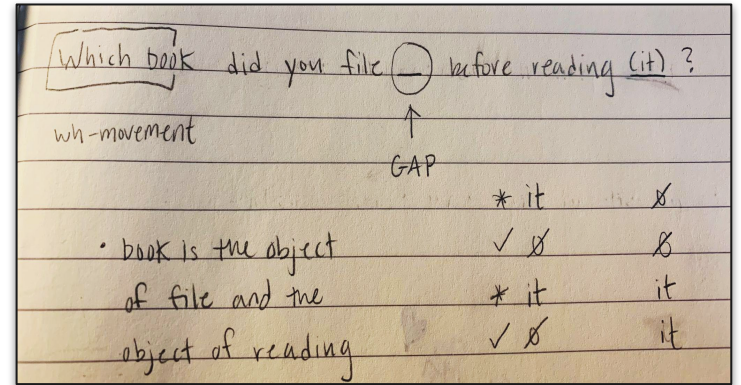 Which book did you file _ before reading (it) ?
↑
wh-movement
GAP
* it ∅
• book is the object ✓ ∅ ∅
of file and the * it it
object of reading ✓ ∅ it